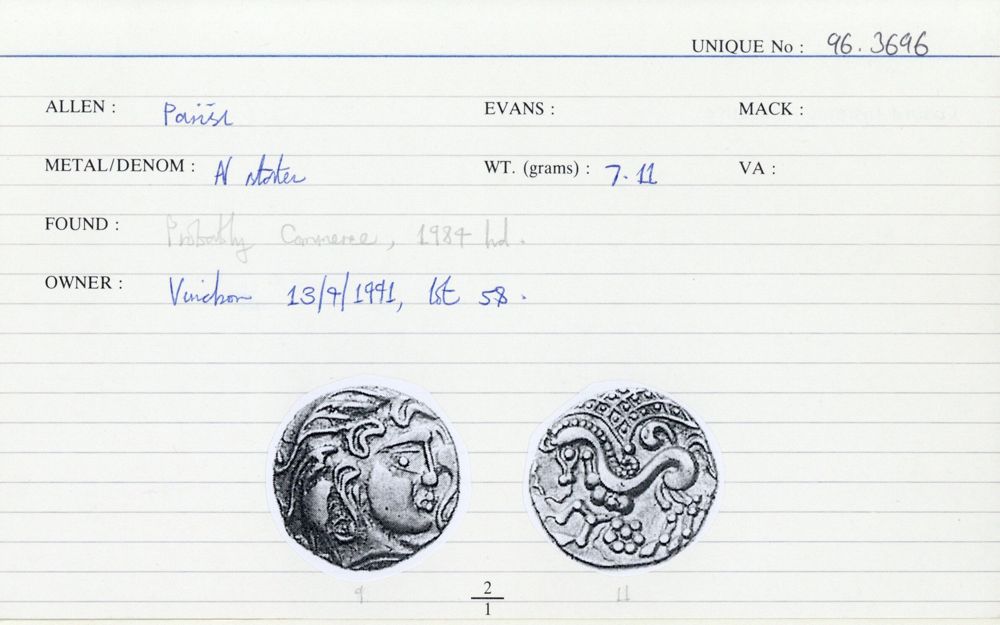 UNIQUE No : 96.3696
ALLEN : Parisi EVANS : MACK :
METAL/DENOM : AV stater WT. (grams) : 7.11 VA :
FOUND : Probably Commerce, 1984 hd.
OWNER : Vinchon 13/4/1991, lot 58.
9 2 11
1